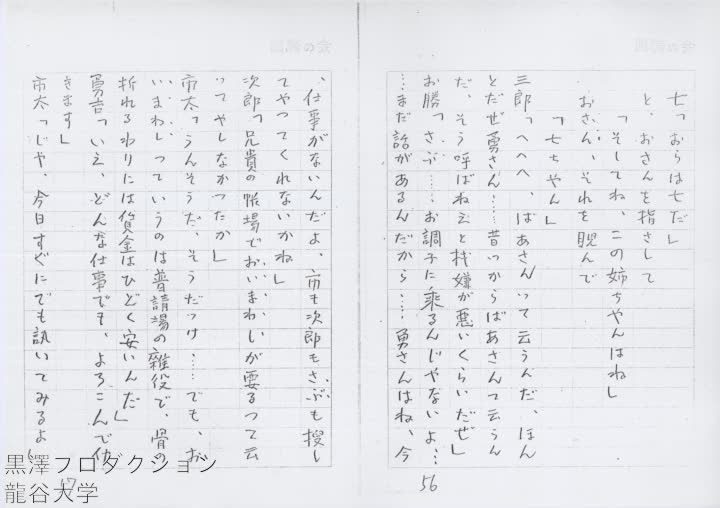 七「おらは七だ」
と、おさんを指さして
「そしてね、この姉ちやんはね」
おさん、それを睨んで
「七ちやん」
三郎「へへへ、ばあさんって云うんだ、ほん
とだぜ勇さん……昔っからばあさんて云うん
だ、そう呼ばねえと機嫌が悪いくらいだぜ」
お勝「さぶ……お調子に乗るんじやないよ…
…まだ話があるんだから……勇さんはね、今
56
、仕事がないんだよ、市も次郎もさぶも捜し
てやってくれないかね」
次郎「兄貴の帳場でおいまわしが要るって云
ってやしなかつたか」
市太「うんそうだ、そうだっけ……でも、お
いまわしっていうのは普請場の雑役で、骨の
折れるわりには賃金はひどく安いんだ」
勇吉「いえ、どんな仕事でも、よろこんで働
きます」
市太「じや、今日すぐにでも訊いてみるよ」
黒澤プロダクション
龍谷大学